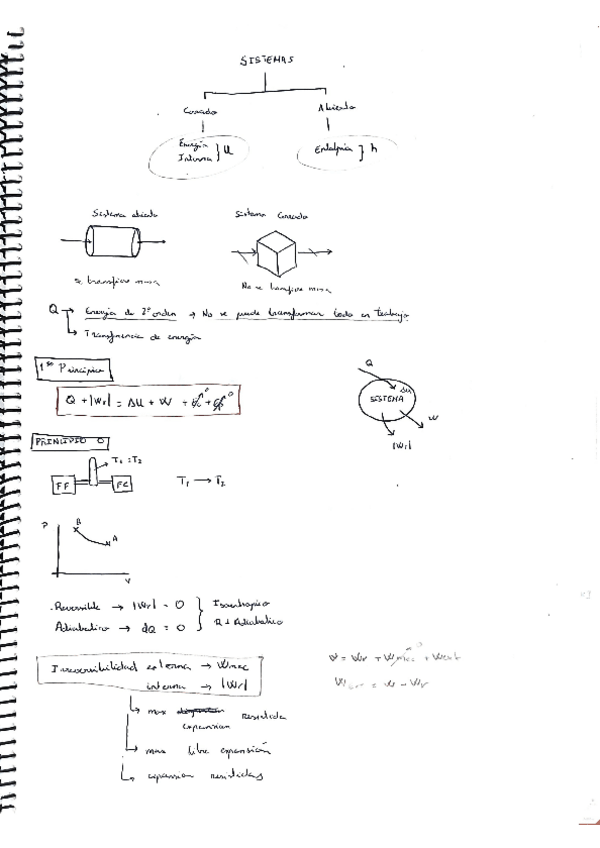 SISTEMAS
Cerrado Abierto
Energía
Interna } U Entalpia } h
Sistema abierto Sistema Cerrado
Se transfiere masa No se transfiere masa
Q → Energía de 2º orden → No se puede transformar todo en trabajo
↳ Transferencia de energía
1er Principio
Q + |Wr| = ΔU + W +
Q
ΔU
SISTEMA
W
|Wr|
PRINCIPIO 0
T1 = T2
FF FC T1 → T2
P
B
A
V
Reversible → |Wr| = 0 } Isoentropico
Adiabatico → dQ = 0 R + Adiabatico
Irreversibilidad externa → Wmec
interna → |Wr|
↳ max resistida
expansion
↳ max libre expansión
↳ expansion resistidas